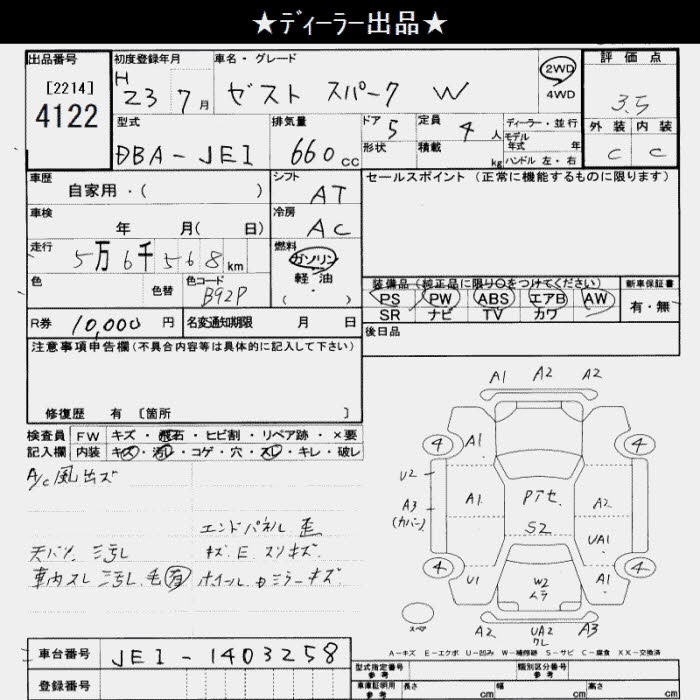 ★ディーラー出品★
出品番号
[2214]
4122
初度登録年月
H 23 7 月
車名・グレード
ゼスト スパーク W
2WD
4WD
評価点
3.5
型式
DBA-JE1
排気量
660 cc
ドア 5
形状
定員 4 人
積載 kg
ディーラー・並行
モデル年式 年
ハンドル 左・右
外装 内装
C C
車歴
自家用・( )
シフト
AT
セールスポイント (正常に機能するものに限ります)
車検
年 月( 日)
冷房
AC
走行
5万6千568km
燃料
ガソリン
軽・油
( . )
色
色替
色コード
B92P
装備品(純正品に限り○をつけてください)
PS PW ABS エアB AW
SR ナビ TV カワ
新車保証書
有・無
R券 10,000 円
名変通知期限 月 日
後日品
注意事項申告欄(不具合内容等は具体的に記入して下さい)
修復歴 有 [箇所 ]
検査員
記入欄
FW キズ・飛石・ヒビ割・リペア跡・×要
内装 キズ・汚レ・コゲ・穴・スレ・キレ・破レ
A/C風出ズ
エンドパネル 歪
天バリ 汚レ
キズ.E.スリキズ.
車内スレ 汚レ.毛有
ホイール.ミラーキズ.
A1 A2 A2
4 A1 4
U2
A3
(カバー)
A1 Pアセ. A2
S2
UA1
4 U1 W2 A1 4
ムラ
スペア
A2 UA2 A3
クレ
A-キズ E-エクボ U-凹み W-補修跡 S-サビ C-腐食 XX-交換済
車台番号 JE1-1403258
登録番号
型式指定番号
参考
類別区分番号
参考
車庫証明用
参考
長さ cm 幅 cm 高さ cm